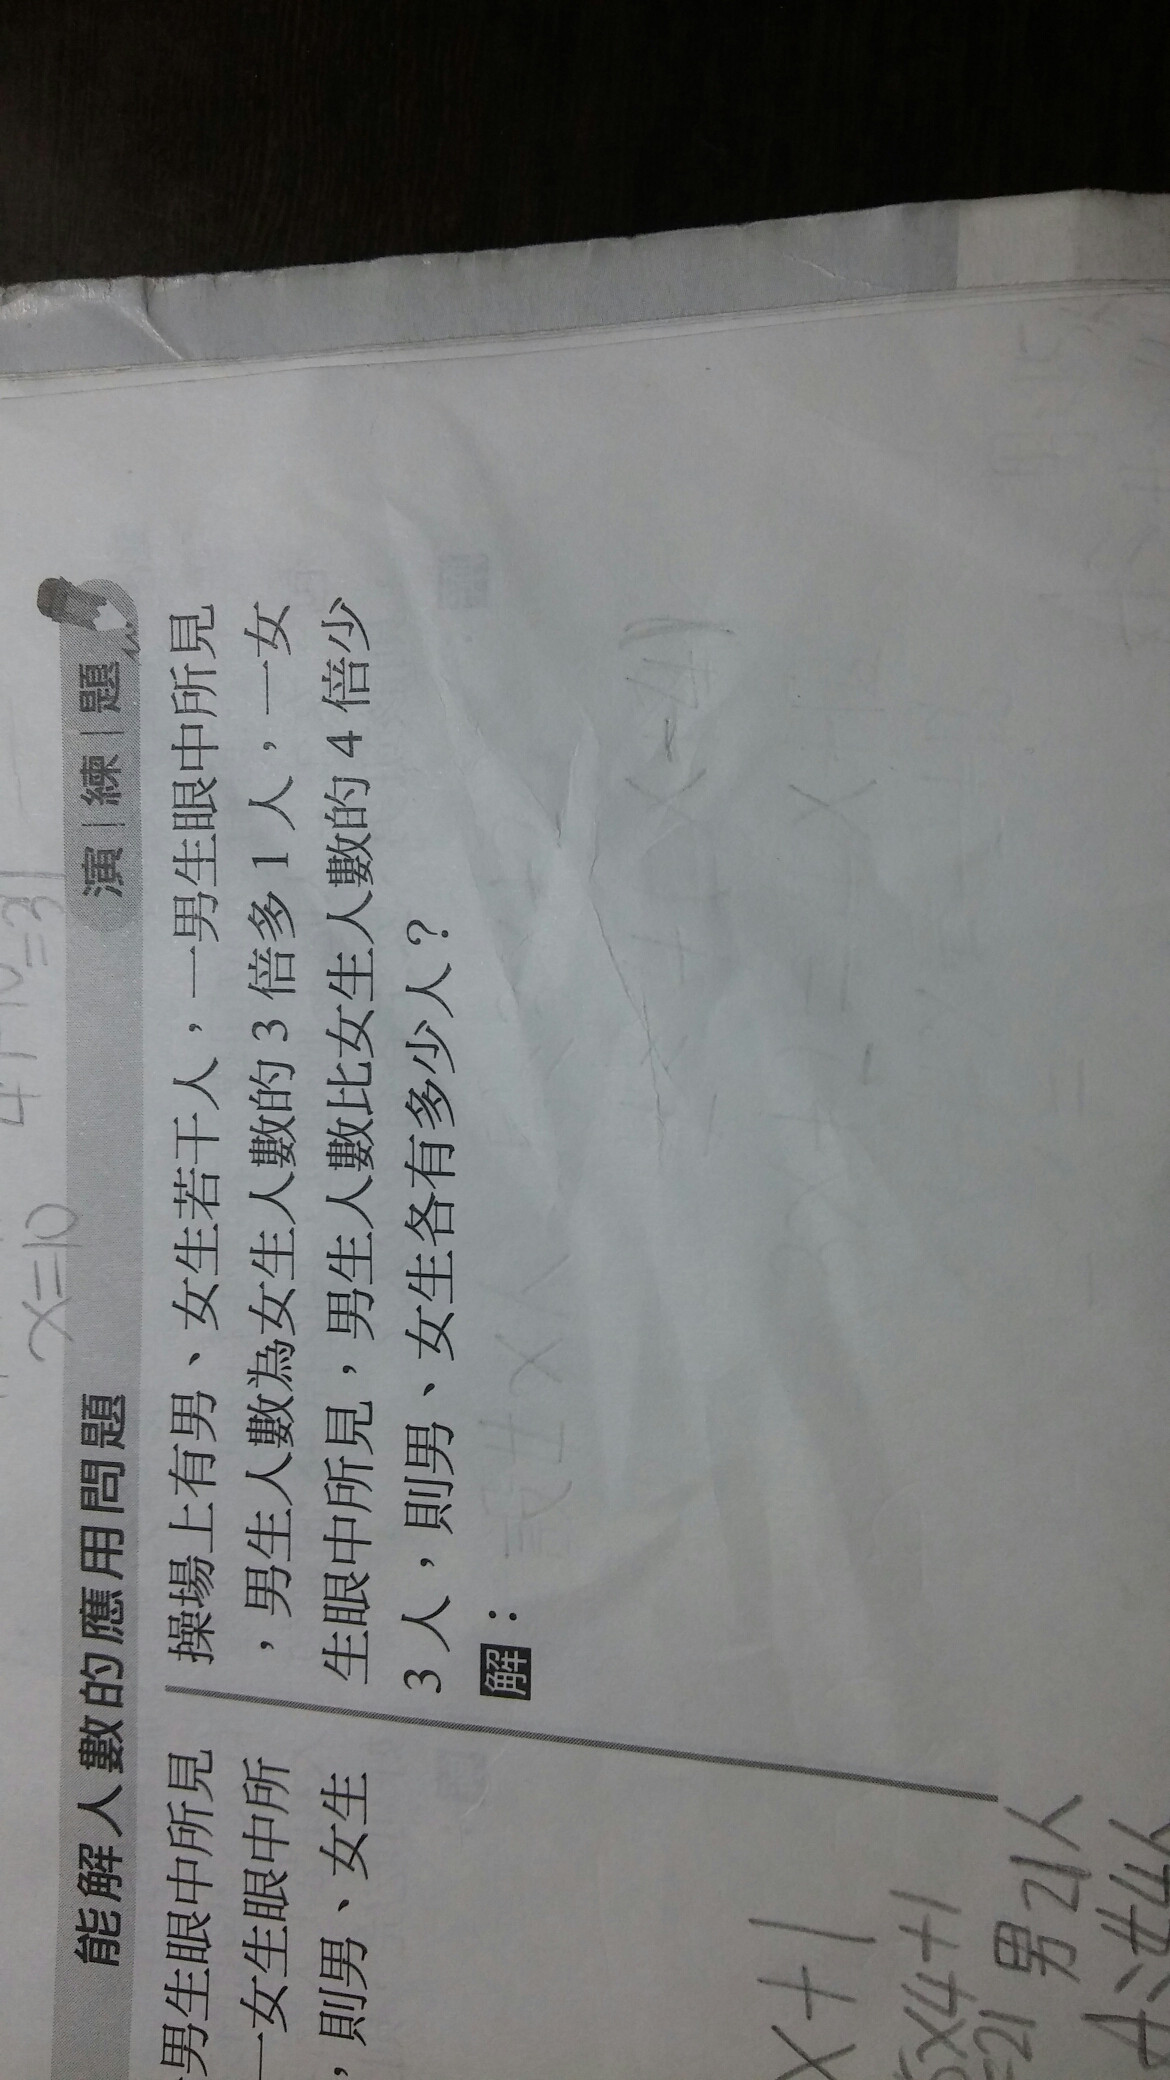 x=10
=31
能解人數的應用問題 演|練|題
男生眼中所見
一女生眼中所
，則男、女生
x+1
5x4+1
=21 男21人
操場上有男、女生若干人，一男生眼中所見
，男生人數為女生人數的3倍多1人，一女
生眼中所見，男生人數比女生人數的4倍少
3人，則男、女生各有多少人？
解：